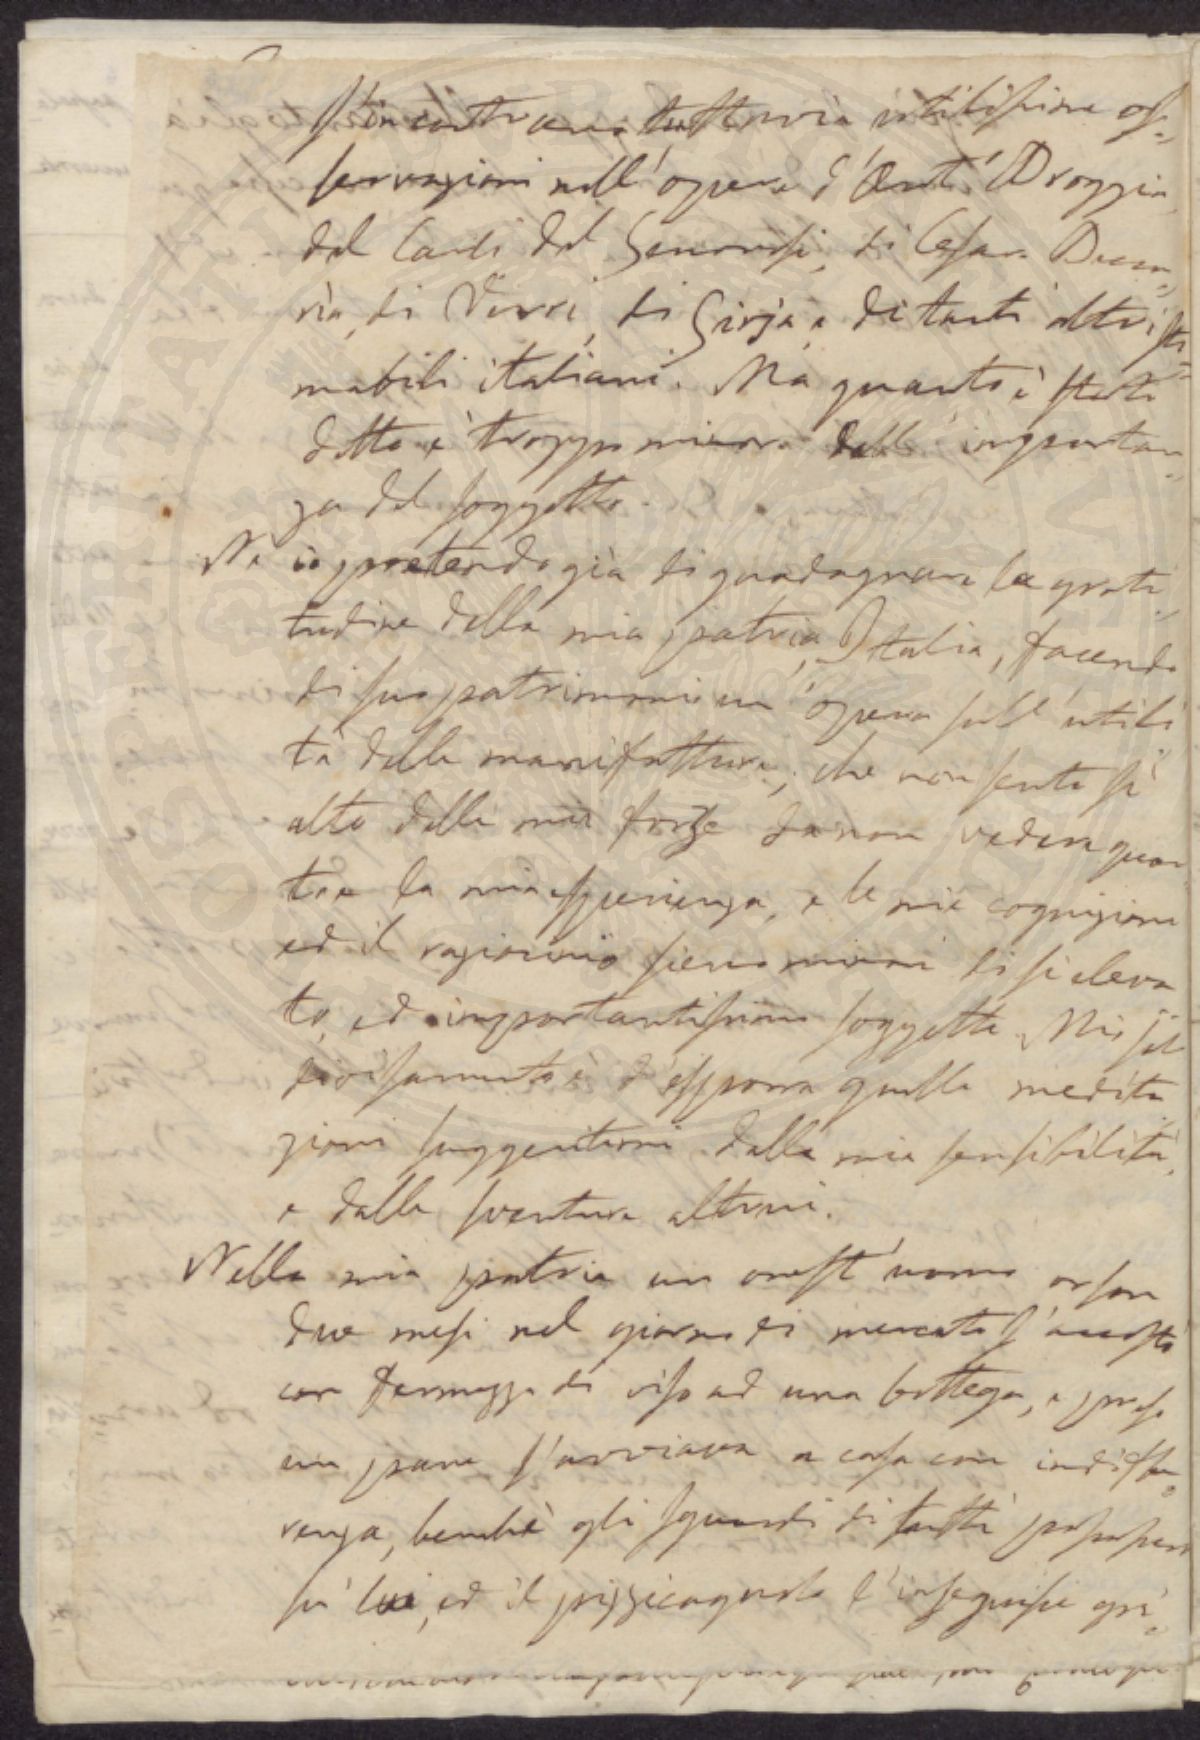 S'incontrano tuttavia utilissime os=
servazioni nell'opere d'Ant. Broggia
del Carli del Genovesi, di Cesare Becca=
ria, di Verri, di Gioja, e di tanti altri sti=
mabili italiani. Ma quanto è stato
detto è troppo minore dell'importan=
za del soggetto.
Ne io pretendo già di guadagnare la grati
tudine della mia patria, Italia, facendo
di suo patrimonio un'opera sull'utili
tà delle manifatture, che non sento sì
alto delle mie forze da non vedere quan
to e la mia esperienza, e le mie cognizioni
ed il raziocinio sieno minori di sì eleva
to, ed importantissimo soggetto. Mio sol
divisamento è d'esporre quelle medita
zioni suggeritemi dalla mia sensibilità,
e dalle sventure altrui.
Nella mia patria un onest'uomo or son
due mesi nel giorno di mercato s'accostò
con fermezza di viso ad una bottega, e preso
un pane s'avviava a casa con indiffe=
renza, benchè gli sguardi di tutti
su lui, ed il pizzicagnolo l'inseguisse gri=